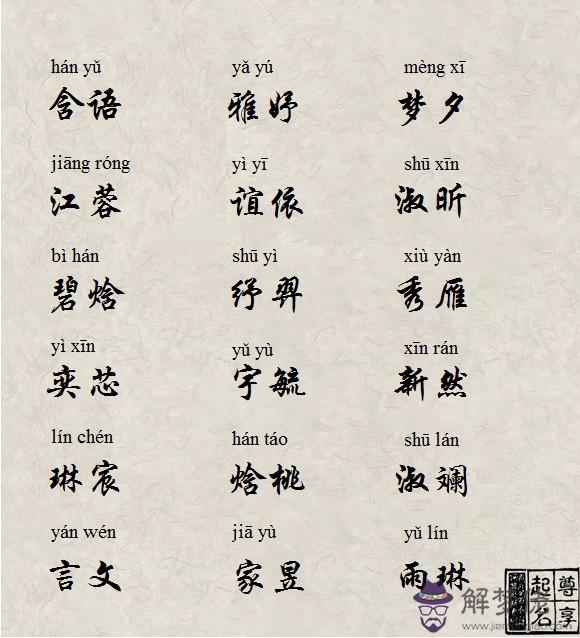 hán yǔ yǎ yú mèng xī
含语 雅妤 梦夕
jiāng róng yì yī shū xīn
江蓉 谊依 淑昕
bì hán shū yì xiù yàn
碧焓 纾羿 秀雁
yì xīn yǔ yù xīn rán
奕芯 宇毓 新然
lín chén hán táo shū lán
琳宸 焓桃 淑斓
yán wén jiā yù yǔ lín
言文 家昱 雨琳
尊享
起名
解梦佬